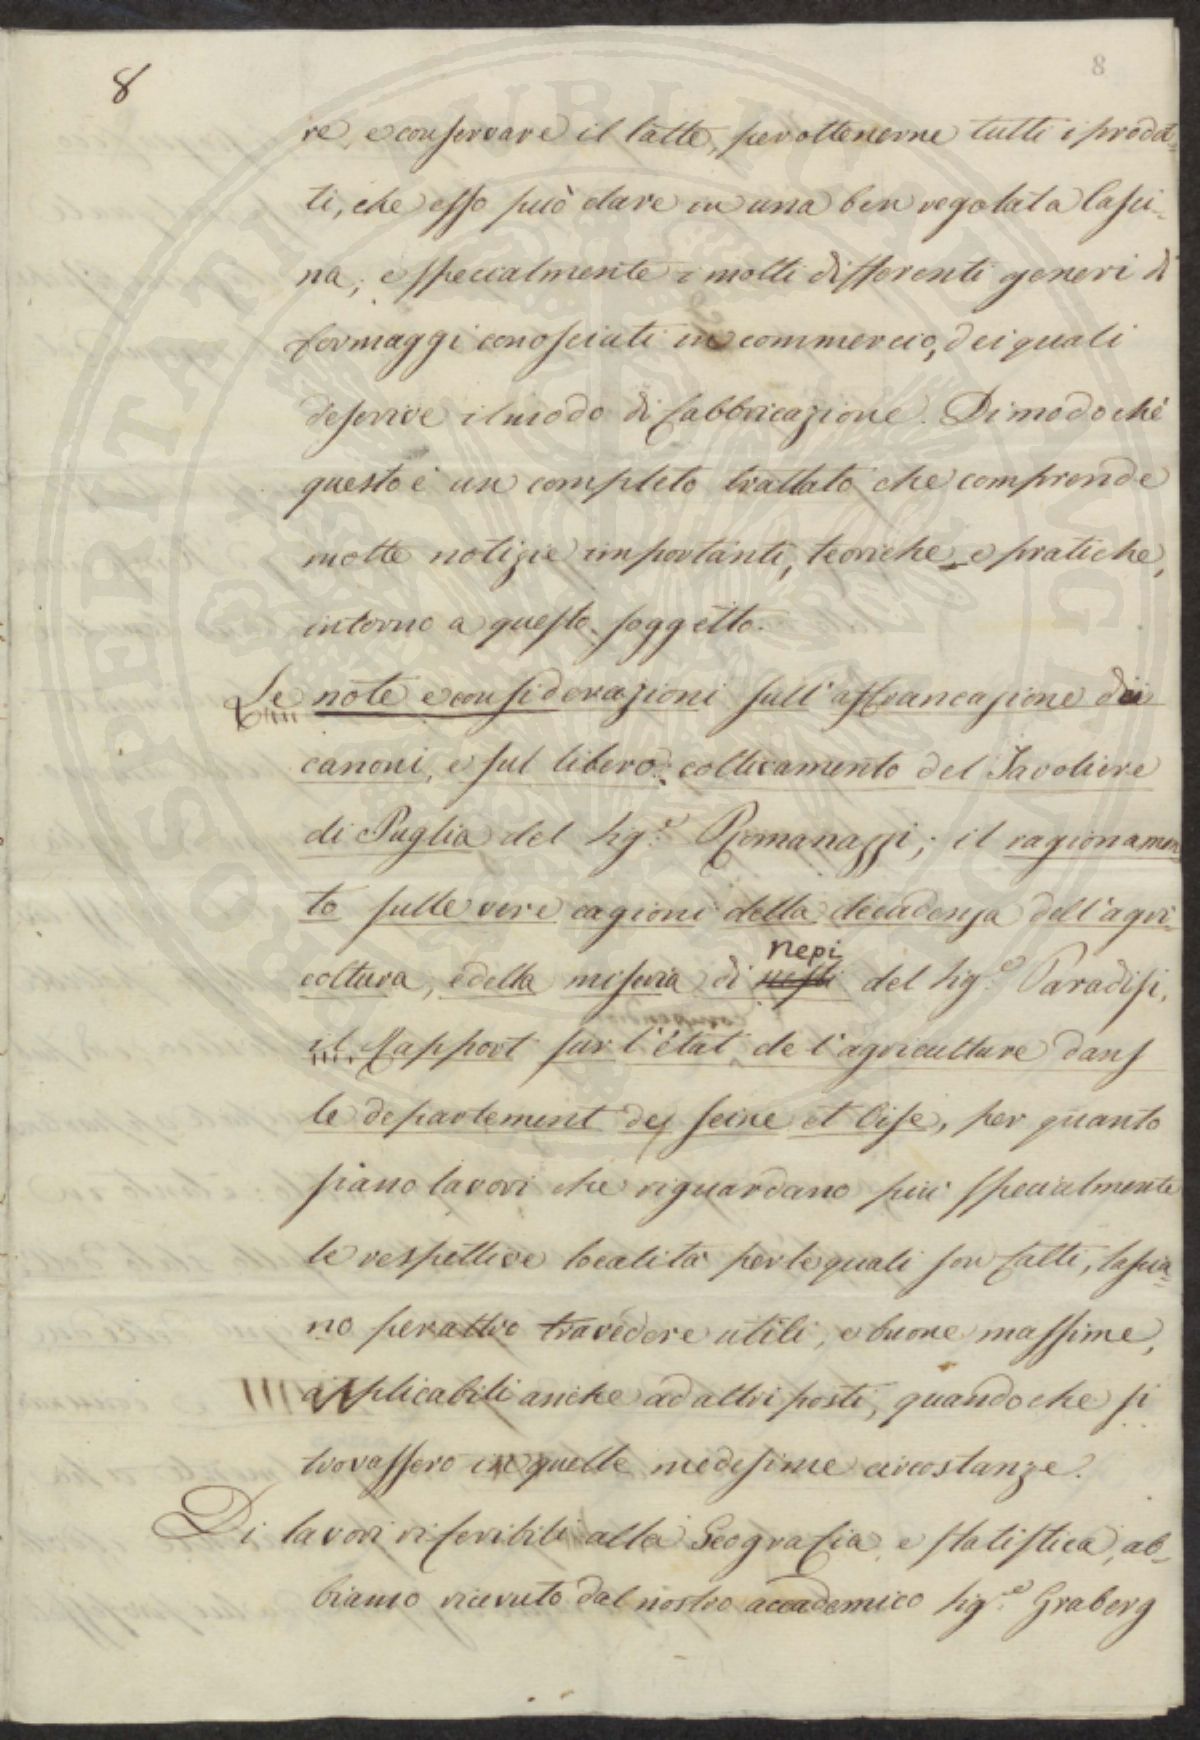 8
8
re, e conservare il latte, per ottenerne tutti i prodot-
ti, che esso può dare in una ben regolata Casci-
na; e specialmente i molti differenti generi di
formaggi conosciuti in commercio, dei quali
descrive il modo di fabbricazione. Dimodochè
questo è un completo trattato che comprende
molte notizie importanti, teoriche, e pratiche,
intorno a questo soggetto.
Le note e considerazioni sull'affrancazione dei
canoni, e sul libero coltivamento del Tavoliere
di Puglia del Sig.e Romanazzi; il ragionamen
to sulle vere cagioni della decadenza dell'agri-
coltura, e della miseria di Nepi del Sig.e Paradisi,
il Rapport sur l'état de l'agriculture dans
le departement des Seine et Oise, per quanto
siano lavori che riguardano più specialmente
le respettive località per le quali son fatti, lascia-
no peraltro travedere utili, e buone massime,
applicabili anche ad altri posti, quandoche si
trovassero in quelle medesime circostanze.
Di lavori riferibili alla Geografia, e statistica, ab-
biamo ricevuto dal nostro accademico Sig.e Graberg
PROSPERITATI PUBLICAE AUGENDAE